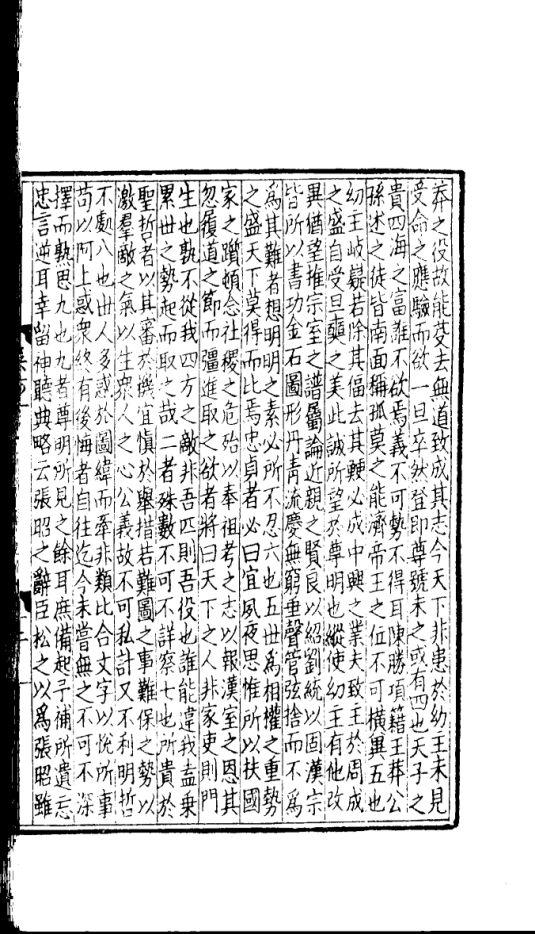 莽之役故能芟去無道致成其志今天下非患於幼主未見
受命之應驗而欲一旦卒然登即尊號未之或有四也天子之
貴四海之富誰不欲焉義不可勢不得耳陳勝項籍王莽公
孫述之徒皆南面稱孤莫之能濟帝王之位不可橫兾五也
幼主岐嶷若除其偪去其鯁必成中興之業夫致主於周成
之盛自受旦奭之美此誠所望於尊明也縱使幼主有他改
異猶望推宗室之譜屬論近親之賢良以紹劉統以固漢宗
皆所以書功金石圖形丹青流慶無窮垂聲管弦捨而不為
爲其難者想明明之素必所不忍六也五世爲相權之重勢
之盛天下莫得而比焉忠貞者必曰宜夙夜思惟所以扶國
家之躓頓念社稷之危殆以奉祖考之志以報漢室之恩其
忽履道之節而彊進取之欲者將曰天下之人非家吏則門
生也孰不從我四方之敵非吾匹則吾役也誰能違我盍乗
累世之勢起而取之哉二者殊數不可不詳察七也所貴於
聖哲者以其審於機宜慎於舉措若難圖之事難保之勢以
激羣敵之氣以生衆人之心公義故不可私計又不利明哲
不處八也世人多惑於圖緯而牽非類比合文字以悅所事
苟以阿上惑衆終有後悔者自往迄今未嘗無之不可不深
擇而熟思九也九者尊明所見之餘耳庶備起予補所遺忘
忠言逆耳幸留神聽典略云張昭之辭臣松之以爲張昭雖